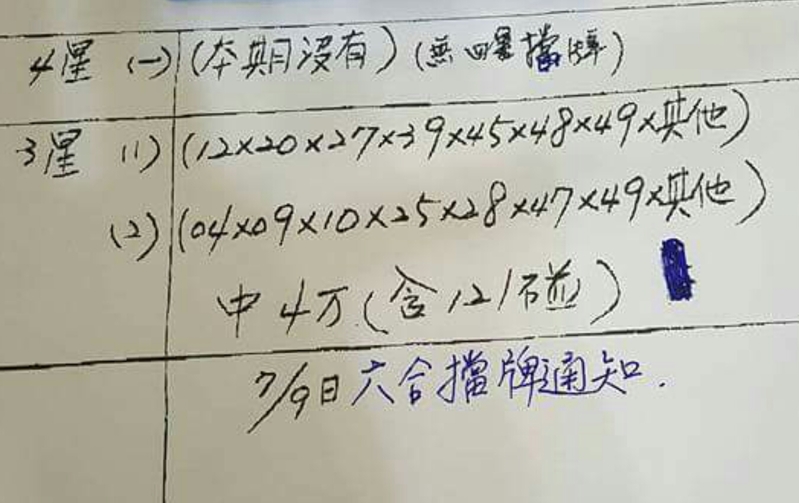 4星 (一) (本期沒有) (無四星擋牌)
3星 (1) (12×20×27×39×45×48×49×其他)
(2) (04×09×10×25×28×47×49×其他)
中4万(含121碰)
7/9日六合擋牌通知.